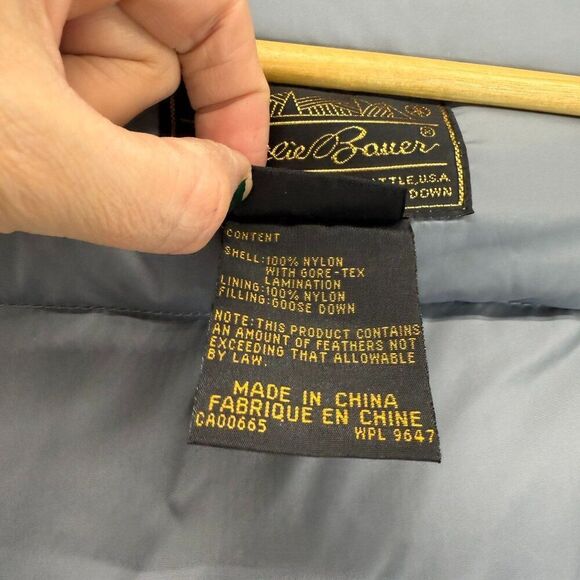 Bauer®
U.S.A.
DOWN
CONTENT
SHELL: 100% NYLON
WITH GORE-TEX
LAMINATION
LINING: 100% NYLON
FILLING: GOOSE DOWN
NOTE: THIS PRODUCT CONTAINS
AN AMOUNT OF FEATHERS NOT
EXCEEDING THAT ALLOWABLE
BY LAW.
MADE IN CHINA
FABRIQUE EN CHINE
CA00665 WPL 9647